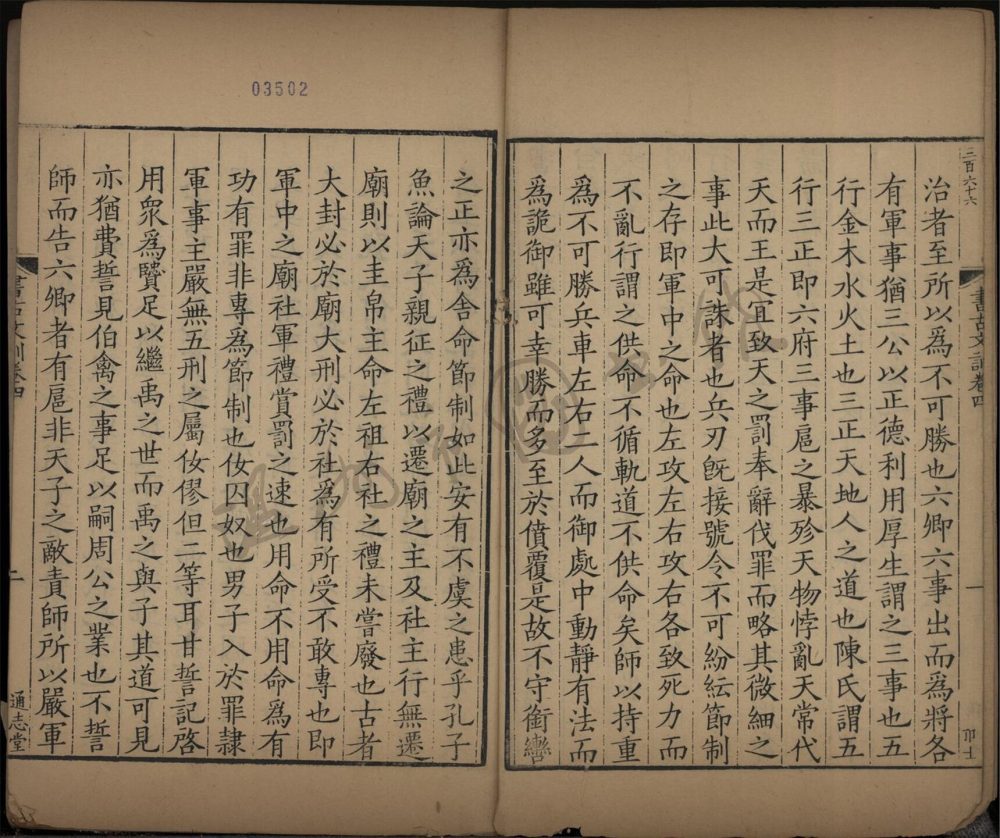 03502
二百六十六
書古文訓卷四
一
治者至所以為不可勝也六卿六事出而為將各
有軍事猶三公以正德利用厚生謂之三事也五
行金木水火土也三正天地人之道也陳氏謂五
行三正即六府三事扈之暴殄天物悖亂天常代
天而王是宜致天之罰奉辭伐罪而略其微細之
事此大可誅者也兵刃旣接號令不可紛紜節制
之存即軍中之命也左攻左右攻右各致死力而
不亂行謂之供命不循軌道不供命矣師以持重
為不可勝兵車左右二人而御處中動靜有法而
為詭御雖可幸勝而多至於僨覆是故不守銜轡
之正亦為舍命節制如此安有不虞之患乎孔子
魚論天子親征之禮以遷廟之主及社主行無遷
廟則以圭帛主命左祖右社之禮未嘗廢也古者
大封必於廟大刑必於社為有所受不敢專也即
軍中之廟社軍禮賞罰之速也用命不用命為有
功有罪非專為節制也伮囚奴也男子入於罪隸
軍事主嚴無五刑之屬伮僇但二等耳甘誓記啓
用眾爲贒足以繼禹之世而禹之與子其道可見
亦猶費誓見伯禽之事足以嗣周公之業也不誓
師而告六卿者有扈非天子之敵責師所以嚴軍
書古文訓卷四
二
通志堂